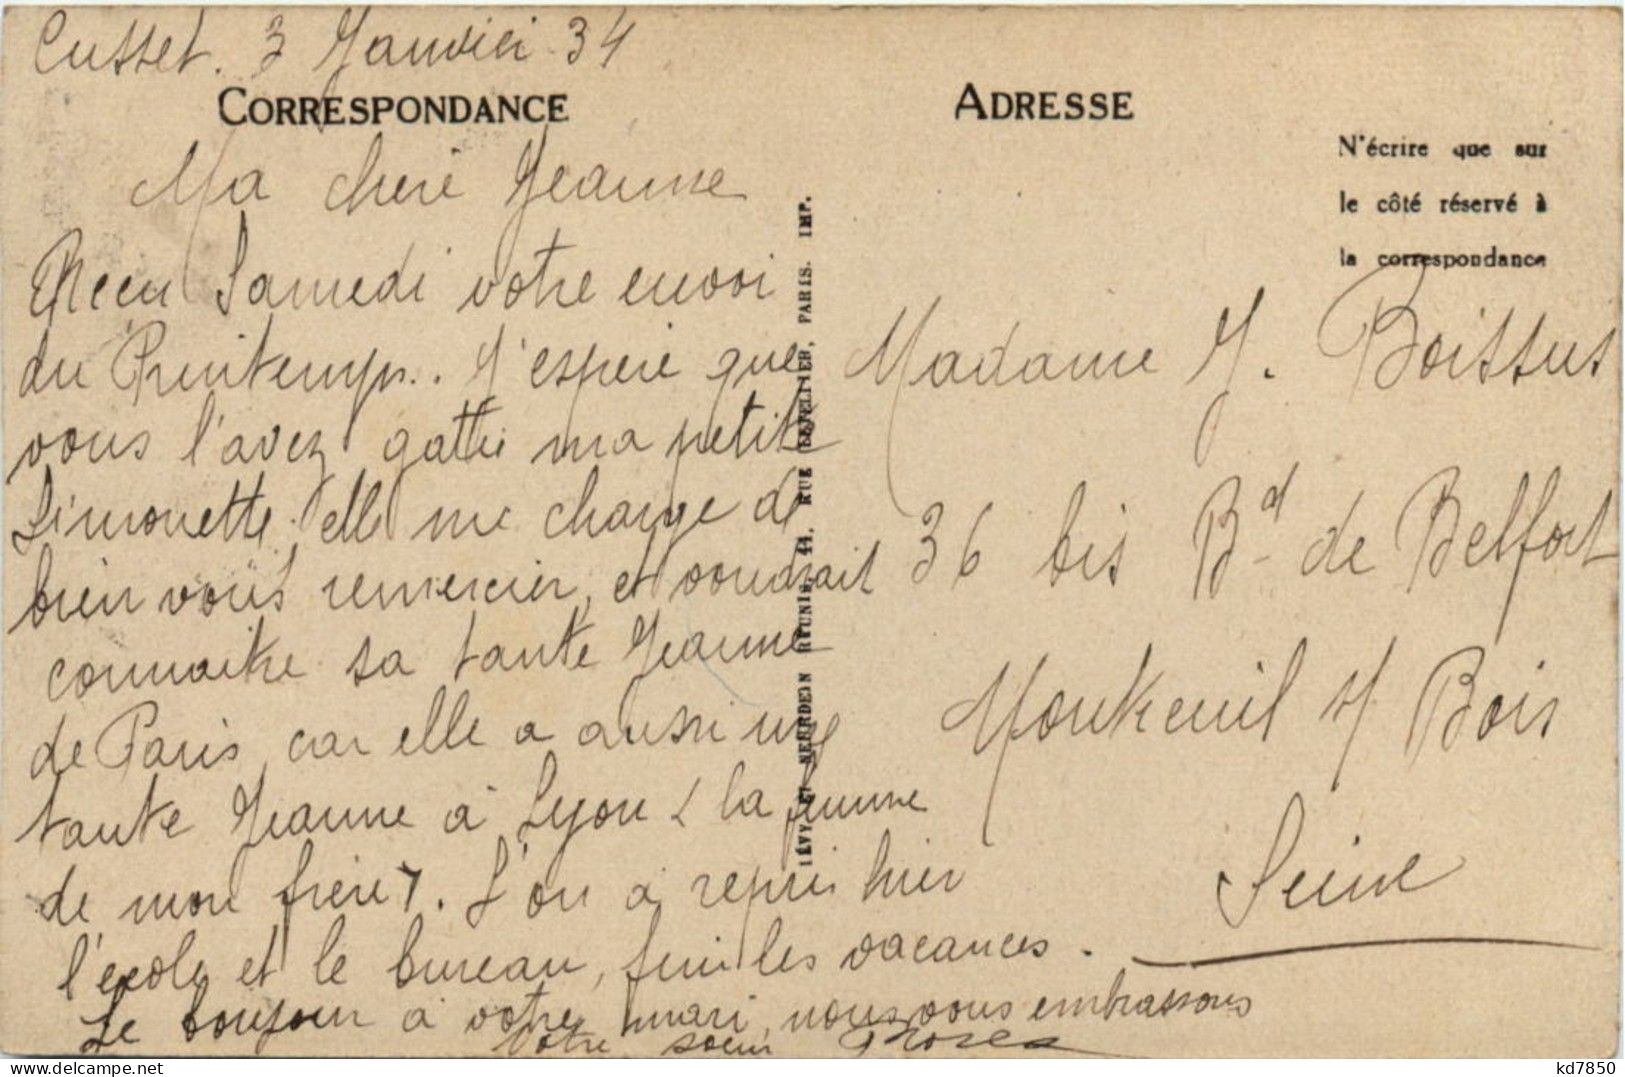 Cusset. 3 Janvier 34
CORRESPONDANCE
Ma chère Jeanne
Reçu Samedi votre envoi
du Printemps.. J'espère que
vous l'avez gattée ma petite
Simonette. elle me charge de
bien vous remercier, et voudrait
connaitre sa tante Jeanne
de Paris, car elle a aussi une
tante Jeanne à Lyon ( la femme
de mon frère). L'on a repris hier
l'école et le bureau, fini les vacances.
Le bonjour à votre mari, nous vous embrassons
Votre soeur
LÉVY ET NEURDEIN RÉUNIS, 44, RUE LETELLIER, PARIS. IMP.
ADRESSE
N'écrire que sur
le côté réservé à
la correspondance
Madame J. Boissus
36 bis Bd de Belfort
Montreuil s/ Bois
Seine
delcampe.net
kd7850